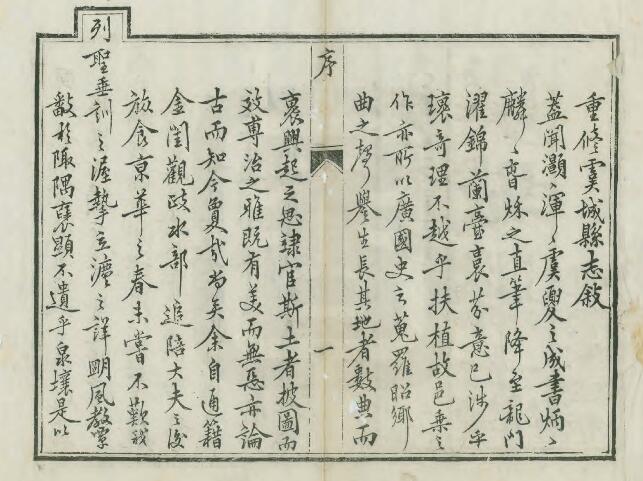 重修虞城縣志敘
蓋聞灝灝渾渾虞夏之成書炳炳
麟麟晉秌之直筆降至龍門
濯錦蘭臺裛芬意已涉乎
瓌奇理不越乎扶植故邑乗之
作亦所以廣國史之蒐羅昭鄉
曲之聲譽生長其地者數典而
序
一
裛興起之思隷官斯土者披圖而
效專治之雅既有美而無惡亦論
古而知今夐哉尚矣余自通籍
金閨觀政水部追陪大夫之後
飲食京華之春未嘗不歎我
列聖垂訓之渥摯立瀍之詳明風教㬎
敷於陬隅襃顯不遺乎泉壤是以